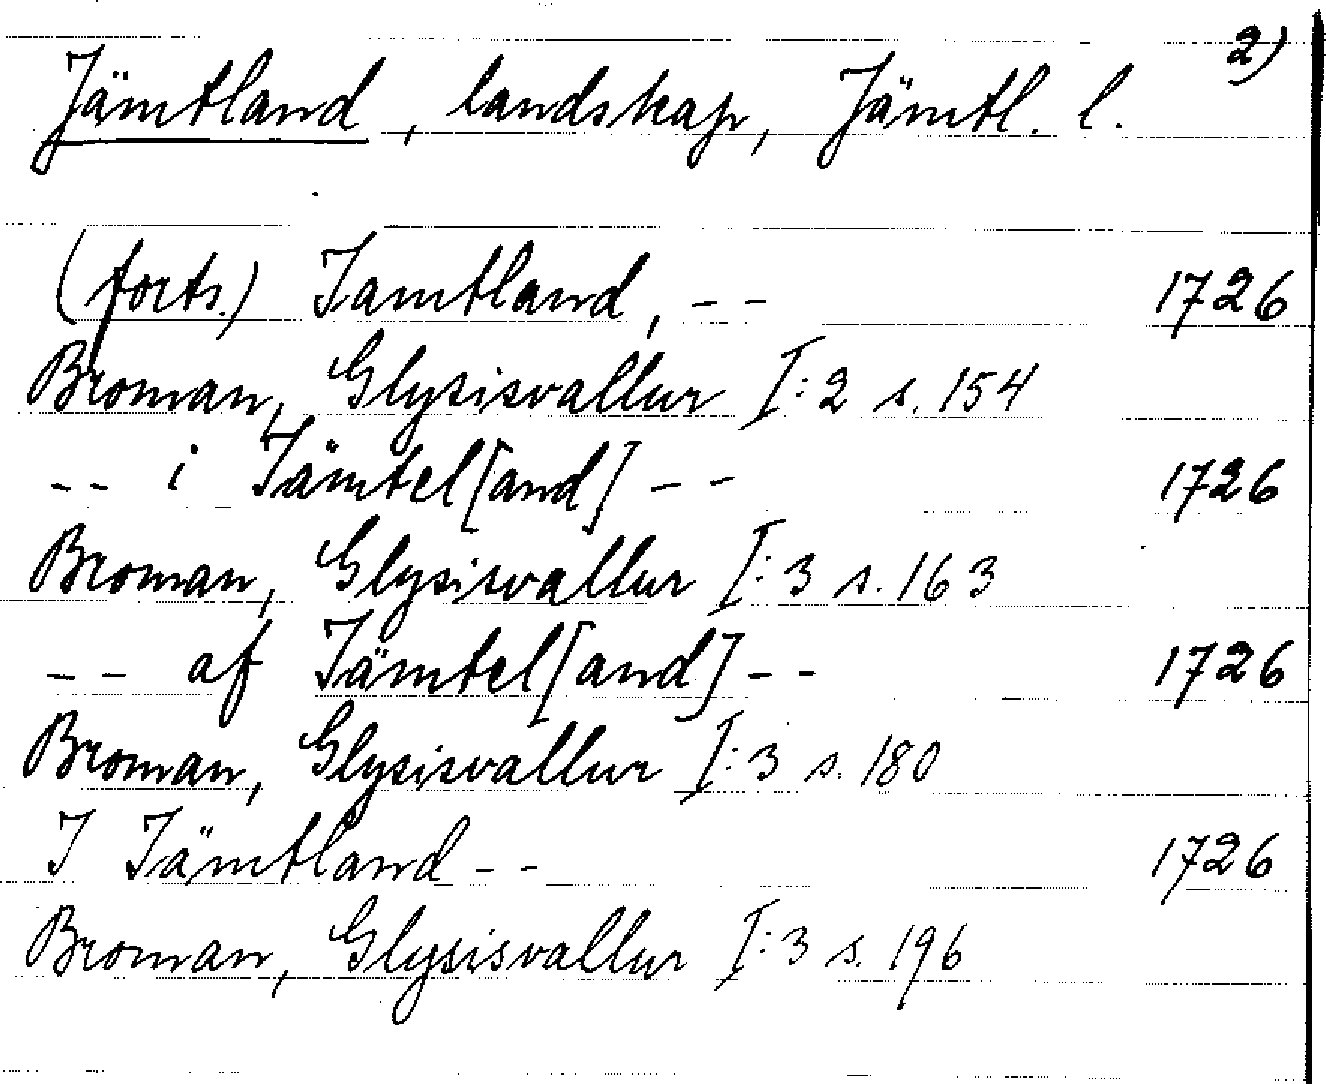 2)
Jämtland, landskap, Jämtl. l.
(forts.) Jamtland, -- 1726
Broman, Glysisvallur I:2 s. 154
-- i Jämtel[and] -- 1726
Broman, Glysisvallur I:3 s. 163
-- af Jämtel[and] -- 1726
Broman, Glysisvallur I:3 s. 180
I Jämtland -- 1726
Broman, Glysisvallur I:3 s. 196